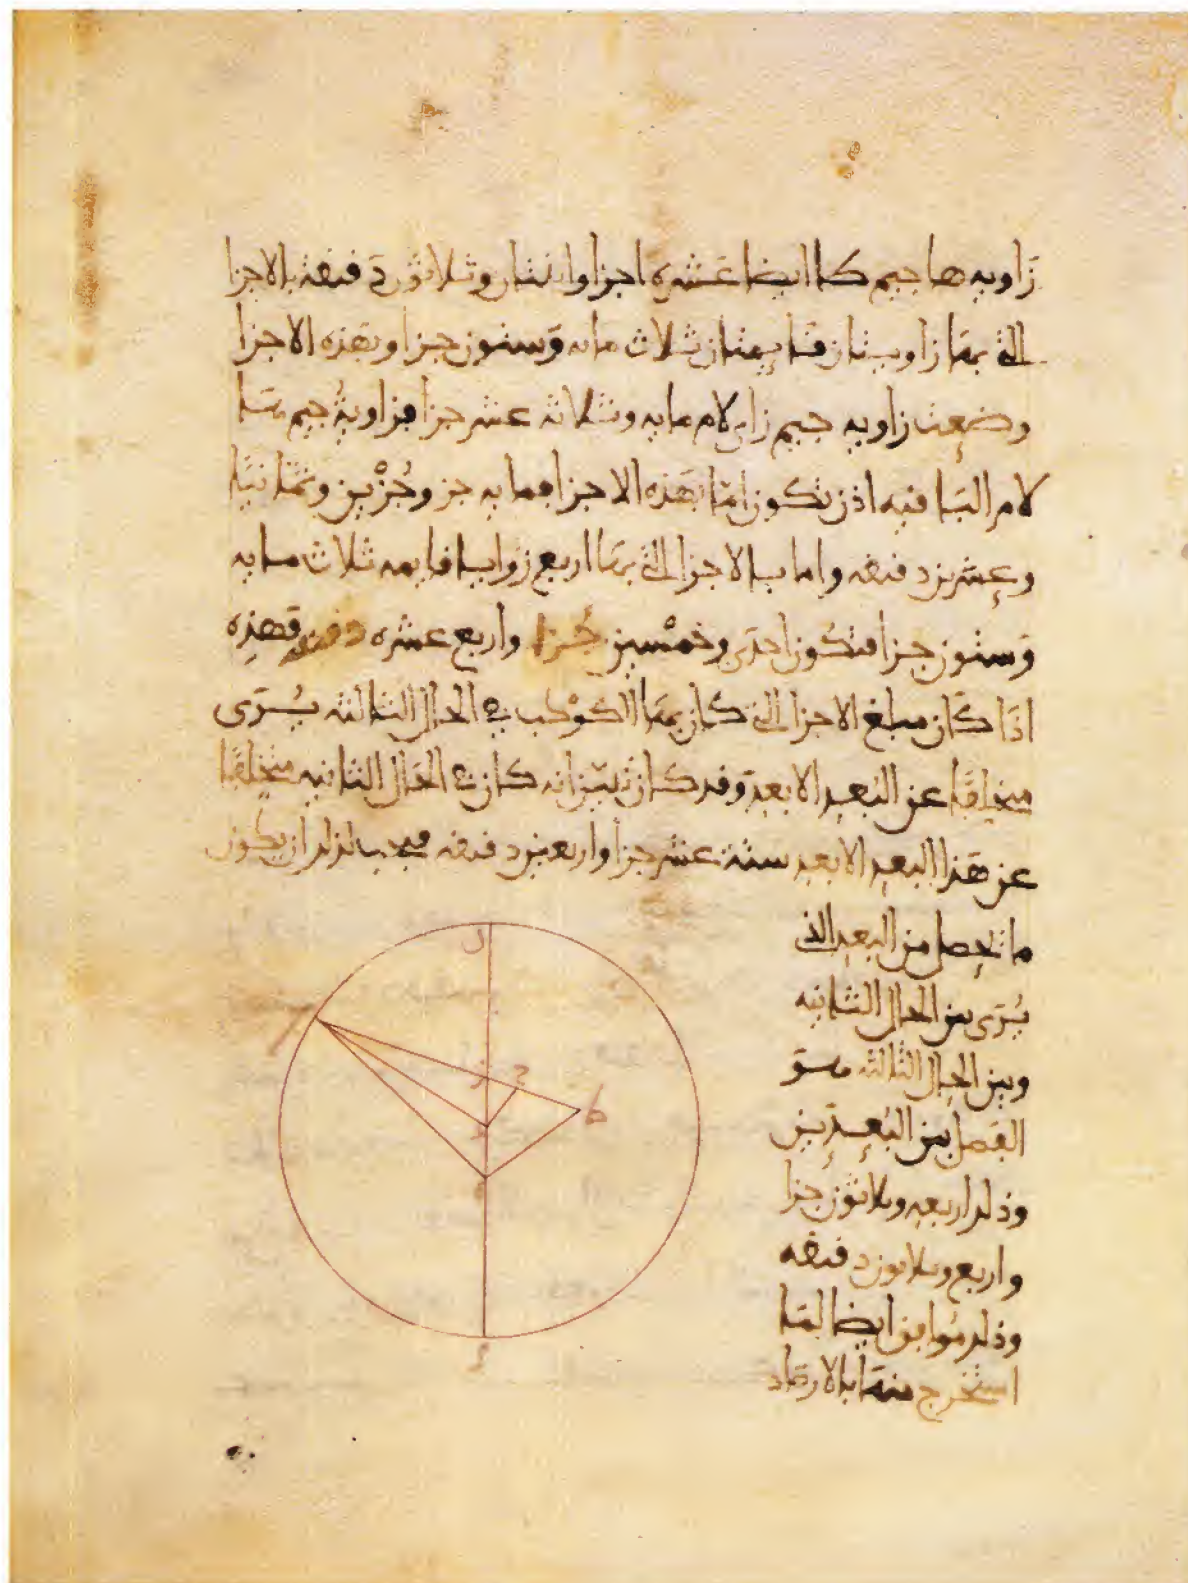 زاويه ها جيم كا ايضا عشره اجزا واثنتان وثلاثون دقيقة بالاجزا
التي بها زاويتان قايمتان ثلاث مايه وستون جزا وبهذه الاجزا
وضعت زاويه جيم زاي لام مايه وثلاثة عشر جزا فزاوية جيم ها
لام الباقيه اذن تكون اما بهذه الاجزا فمايه جز وجزين وثمانيا
وعشرين دقيقه واما بالاجزا التي بها اربع زوايا قايمه ثلاث مايه
وستون جزا فتكون احدى وخمسين جزا واربع عشره دقيقه فهذه
اذا كان مبلغ الاجزا التي كان بها الكوكب في الحال الثالثه يرى
متخلفا عن البعد الابعد وقد كان تبين انه كان في الحال الثانيه متخلفا
عن هذا البعد الابعد ستة عشر جزا واربعين دقيقه فيجب لذلك ان يكون
ما تحصل من البعد الذي
يرى بين الحال الثانيه
وبين الحال الثالثه هو
الفصل بين البعدين
وذلك اربعه وثلاثون جزا
واربع وثلاثون دقيقه
وذلك موافق ايضا لما
استخرج منها بالارصاد
ل
ز
ح
ط
ك
ه
م